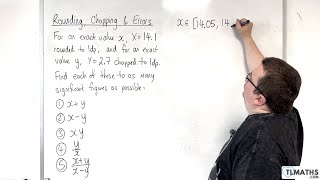 Rounding, Chopping & Errors
For an exact value x, X=14.1
rounded to 1dp, and for an exact
value y, Y=2.7 chopped to 1dp.
Find each of these to as many
significant figures as possible:
① x+y
② x-y
③ xy
④ y/x
⑤ x+y/x-y
x ∈ [14.05, 14
TLMATHS
.COM